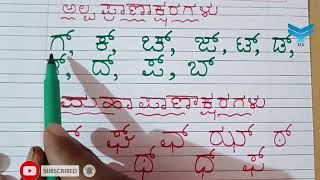 ಅಲ್ಪ ಪ್ರಾಣಾಕ್ಷರಗಳು
ಗ್, ಕ್, ಚ್, ಜ್, ಟ್, ಡ್,
ದ್, ಪ್, ಬ್
ಮಹಾಪ್ರಾಣಾಕ್ಷರಗಳು
ಘ್ ಛ್ ಝ್ ಠ್
ಧ್ ಫ್
SUBSCRIBED